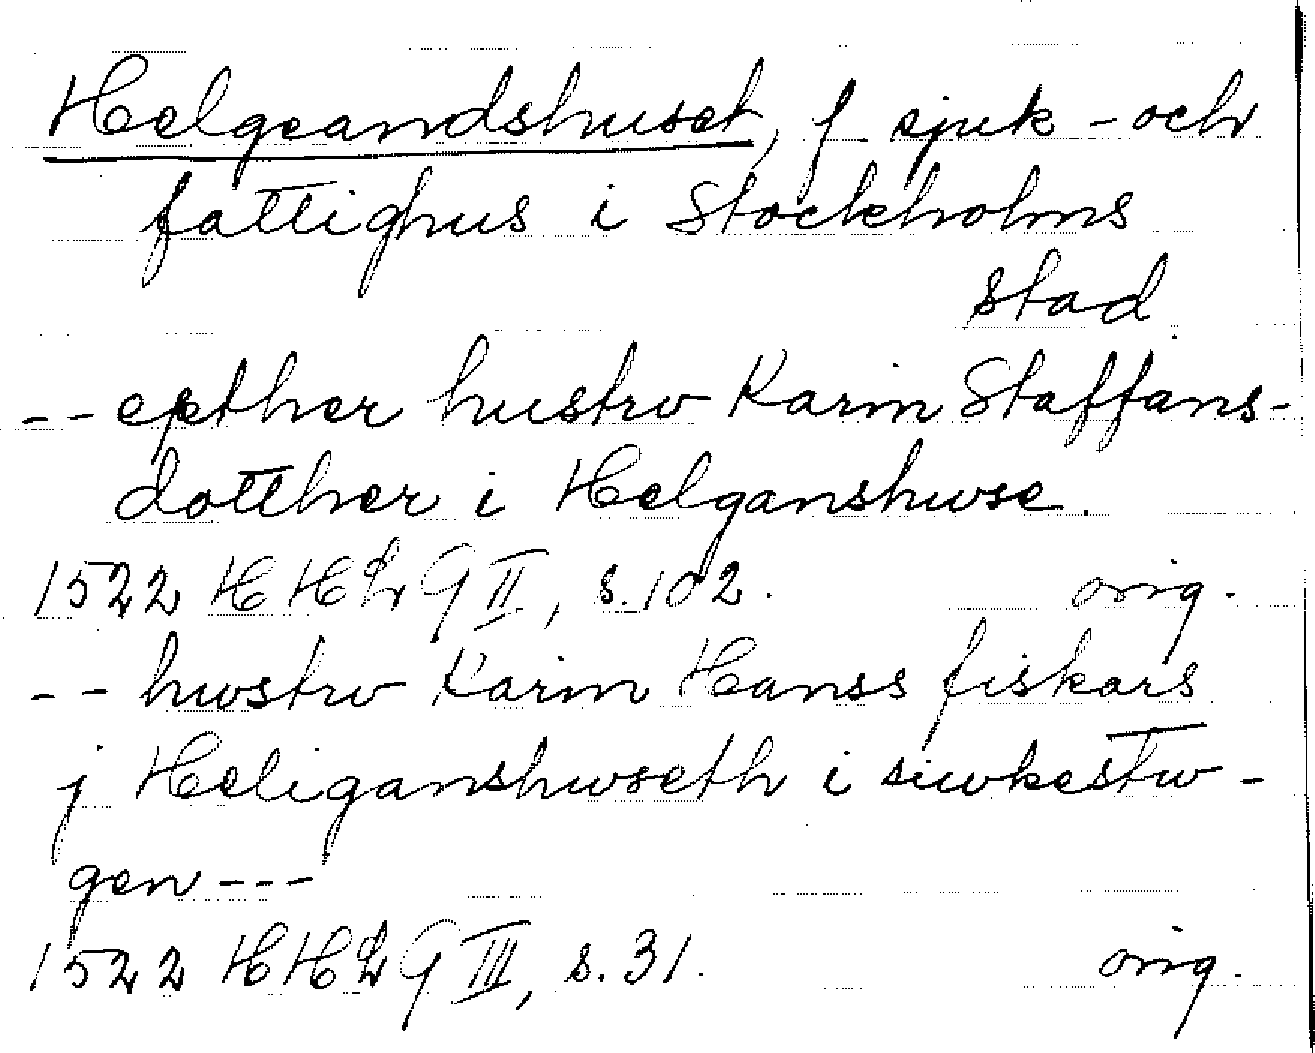 Helgeandshuset, f sjuk - och
fattighus i Stockholms
stad
-- epther hustrv Karin Staffans-
dotther i Helganshwse.
1522 HHLG II, s. 102. orig.
-- hwstrv Karin Hanss fiskars
j Heliganshwseth i siwkestw-
gen ---
1522 HHLG III, s. 31. orig.